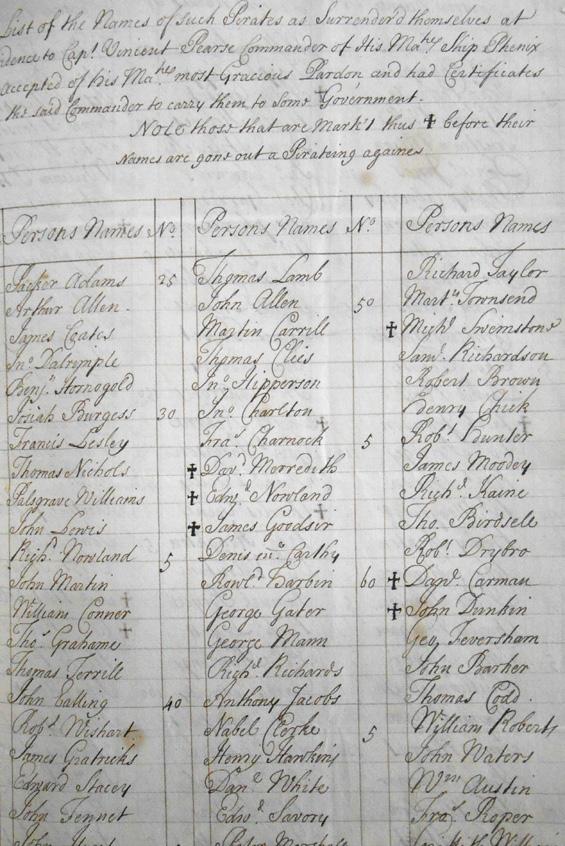 List of the Names of such Pirates as Surrender'd themselves at
dence to Capt. Vincent Pearse Commander of His Ma:tys Ship Phenix
accepted of his Ma:tys most Gracious Pardon and had Certificates
the said Commander to carry them to Some Government.
Note those that are Mark't thus ✝ before their
Names are gone out a Pirateing againe
Persons Names No. Persons Names No. Persons Names
Packer Adams 25 Thomas Lamb Richard Taylor
Arthur Allen. John Allen 50 Martn. Townsend
James Coates Martin Carrill ✝ Michl. Swimstone
Jno. Dalrimple Thomas Clies Saml. Richardson
Benj. Hornogold Jno. Hipperson Robert Brown
Josiah Burgess 30 Jno. Charlton Henry Chick
Francis Lesley Fras. Charnock 5 Robt. Hunter
Thomas Nichols ✝ Davd. Merredith James Moodey
Palsgrave Williams ✝ Edmd. Nowland Richd. Kaine
John Lewis ✝ James Goodsir Tho. Birdsell
Richd. Nowland 5 Denis mc. Carthy Robt. Drybro
John Martin Rowld. Harbin 60 ✝ Danl. Carman
William Conner George Gater ✝ John Dunkin
Thos. Grahame George Mann Geo. Feversham
Thomas Terrill Richd. Richards John Barker
John Ealling 40 Anthony Jacobs Thomas Codd.
Robt. Wishart Nabel Clerke 5 William Roberts
James Gratricks Henry Hawkins John Waters
Edward Stacey Danl. White Wm. Austin
John Tennet Edwd. Savory Fras. Roper
John